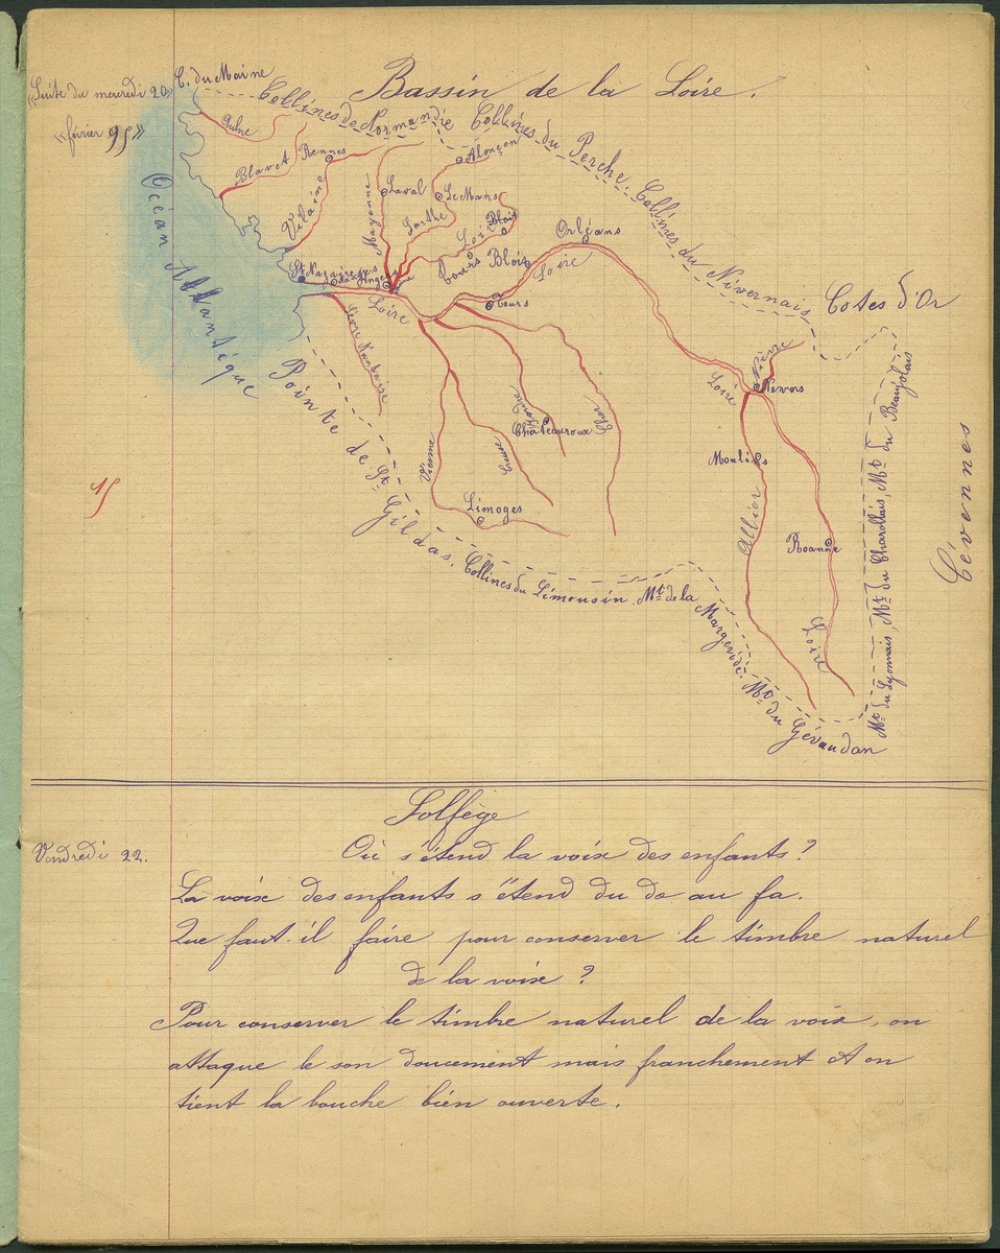 (Suite du mercredi 20)
«février 95»
C. du Maine
Bassin de la Loire.
Collines de Normandie
Collines du Perche.
Collines du Nivernais
Côtes d'Or
Aulne
Blavet
Rennes
Vilaine
Mayenne
Laval
Alençon
Le Mans
Sarthe
Loir
Blois
Tours
Blois
Orléans
Loire
Océan Atlantique
St Nazaire
Angers
Loire
Tours
Sèvre Nantaise
Nièvre
Nevers
Loire
Pointe de St Gildas.
Vienne
Creuse
Indre
Châteauroux
Cher
Limoges
Moulins
Allier
Roanne
Loire
15
Collines du Limousin.
Mts de la Margeride.
Mts du Gévaudan
Mts du Lyonnais, Mts du Charollais, Mts du Beaujolais
Cévennes
Solfège
Vendredi 22.
Où s'étend la voix des enfants?
La voix des enfants s'étend du do au fa.
Que faut-il faire pour conserver le timbre naturel
de la voix?
Pour conserver le timbre naturel de la voix, on
attaque le son doucement mais franchement et on
tient la bouche bien ouverte.